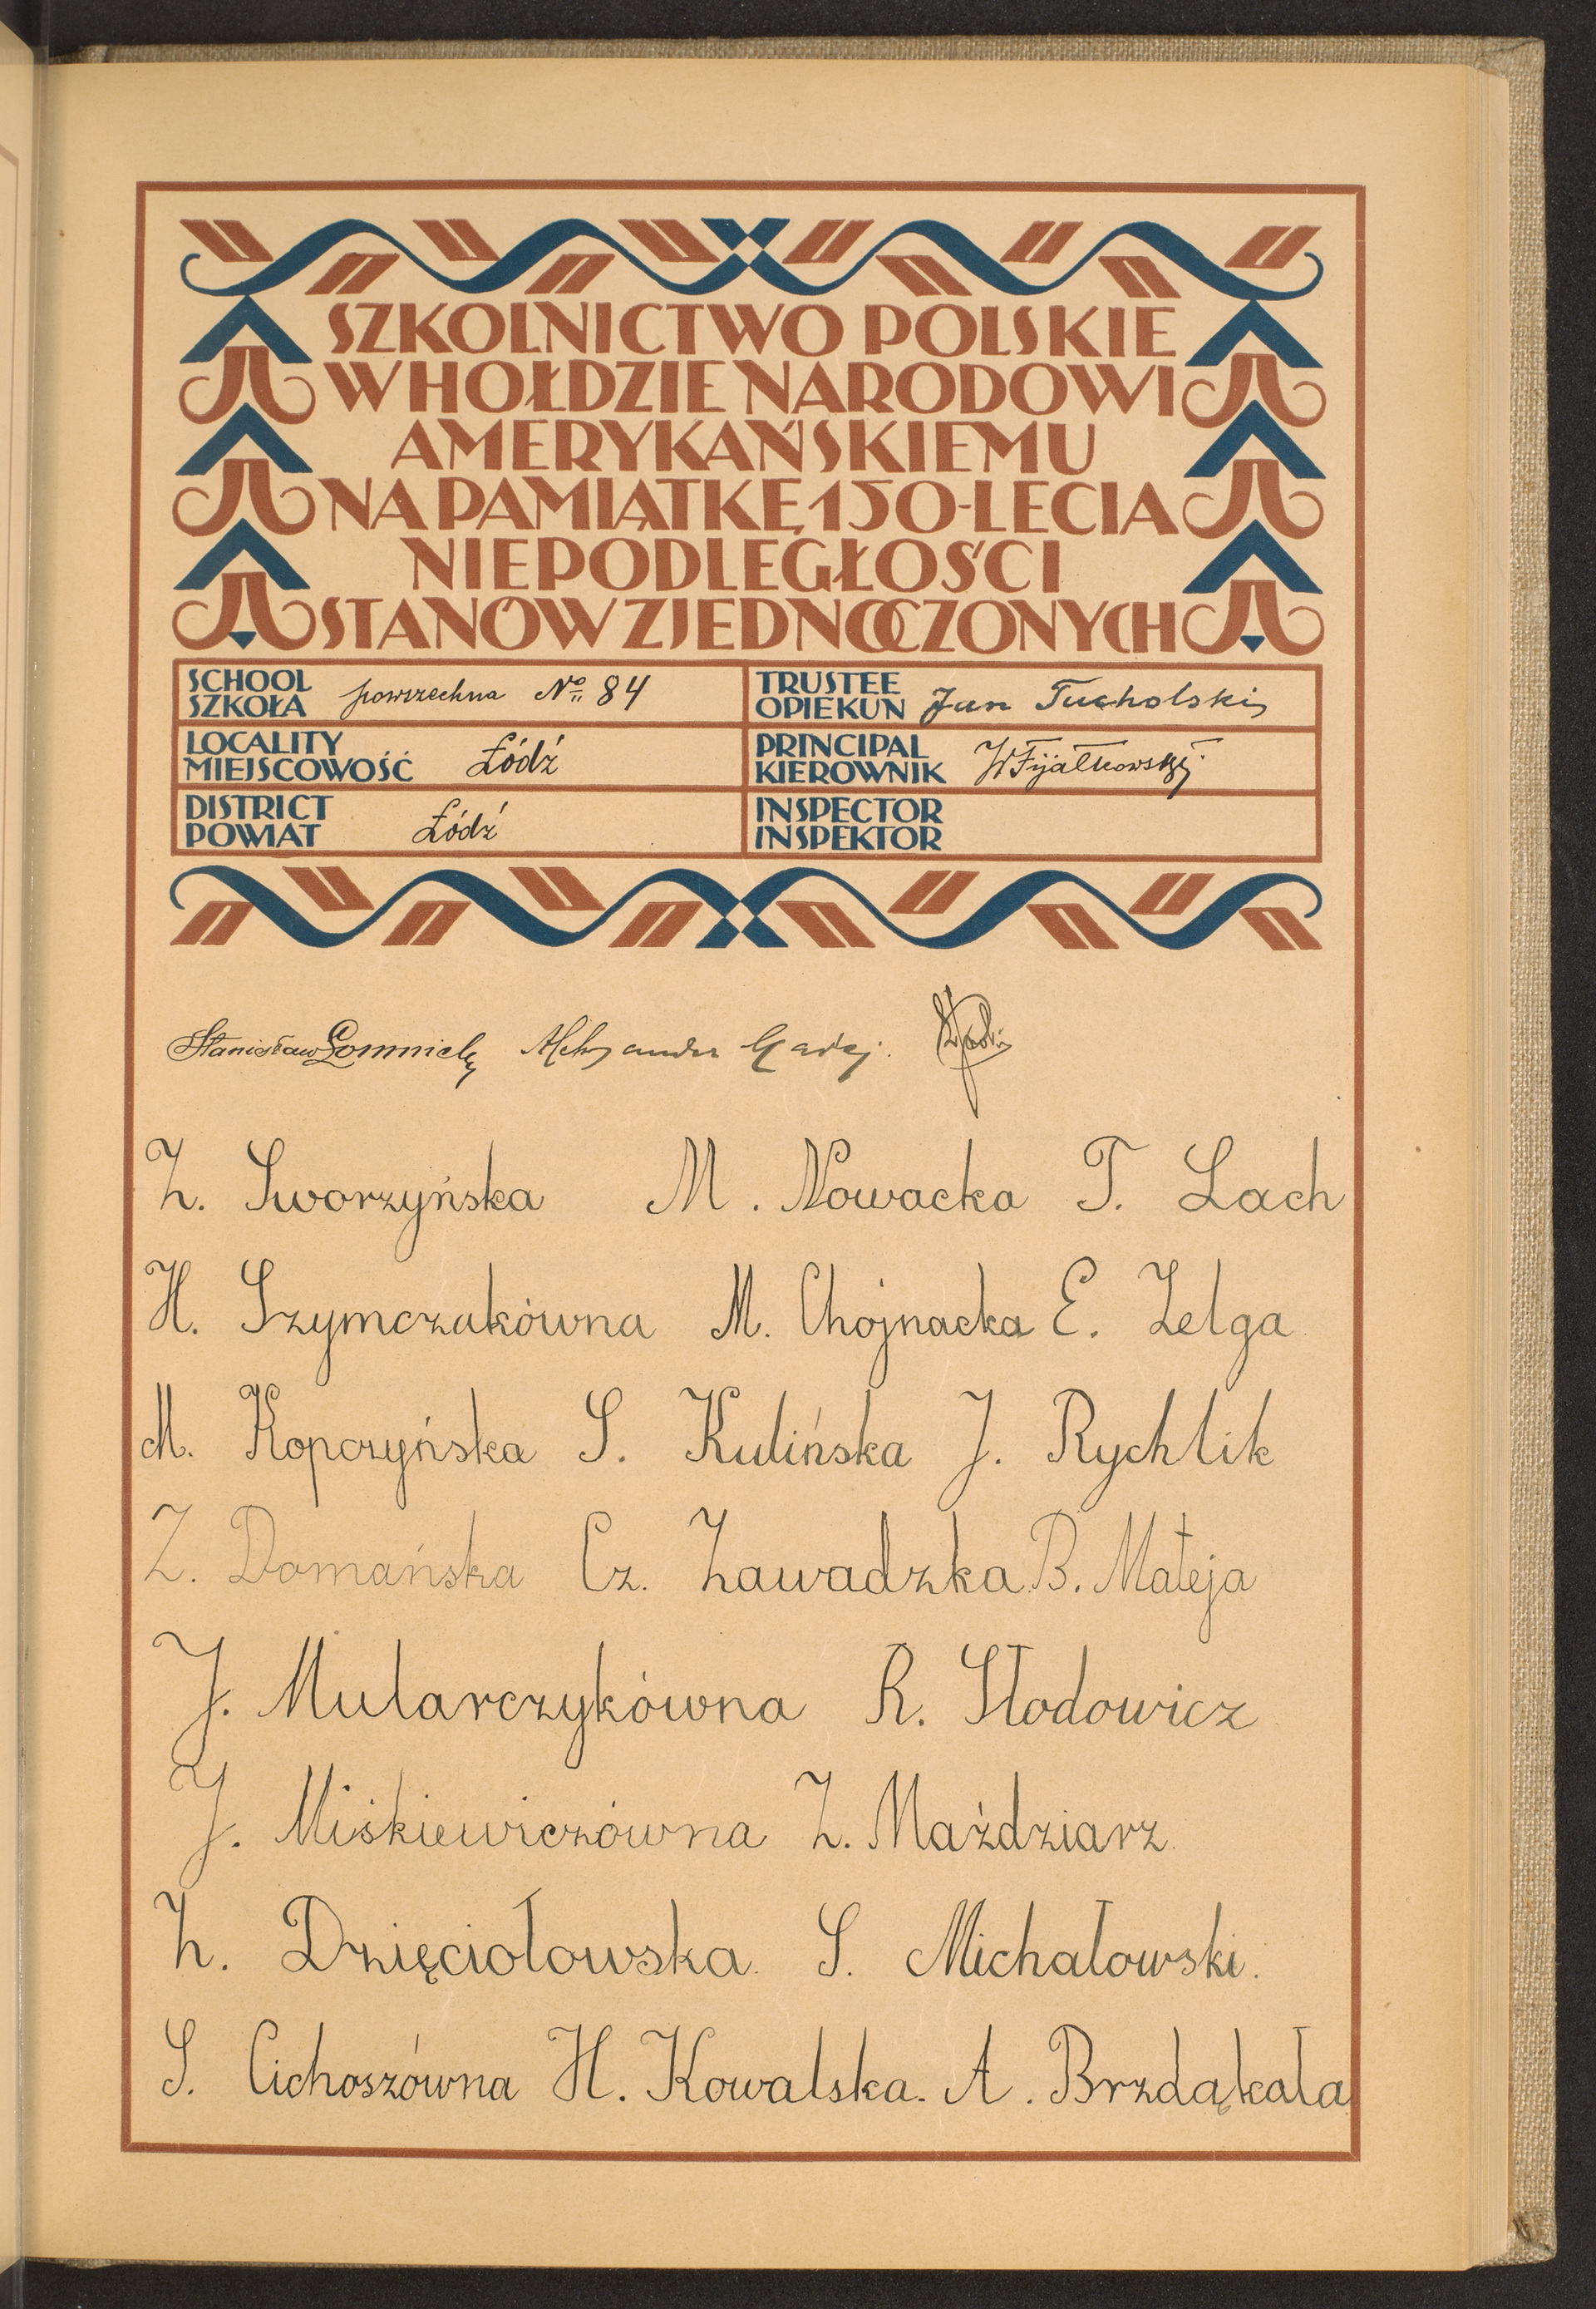 SZKOLNICTWO POLSKIE
W HOŁDZIE NARODOWI
AMERYKAŃSKIEMU
NA PAMIĄTKĘ 150-LECIA
NIEPODLEGŁOŚCI
STANÓW ZJEDNOCZONYCH
SCHOOL SZKOŁA powszechna № 84
TRUSTEE OPIEKUN Jan Tucholski
LOCALITY MIEJSCOWOŚĆ Łódź
PRINCIPAL KIEROWNIK W Fijałkowski
DISTRICT POWIAT Łódź
INSPECTOR INSPEKTOR
Stanisław Łomnicki Aleksander
Z. Sworzyńska M. Nowacka T. Lach
H. Szymczakówna M. Chojnacka E. Zelga
M. Kopczyńska S. Kulińska J. Rychlik
Z. Domańska Cz. Zawadzka B. Mateja
J. Mularczykówna R. Słodowicz
J. Miśkiewiczówna Z. Maździarz
Z. Dzięciołowska S. Michałowski.
S. Cichoszówna H. Kowalska. A. Brzdąkała